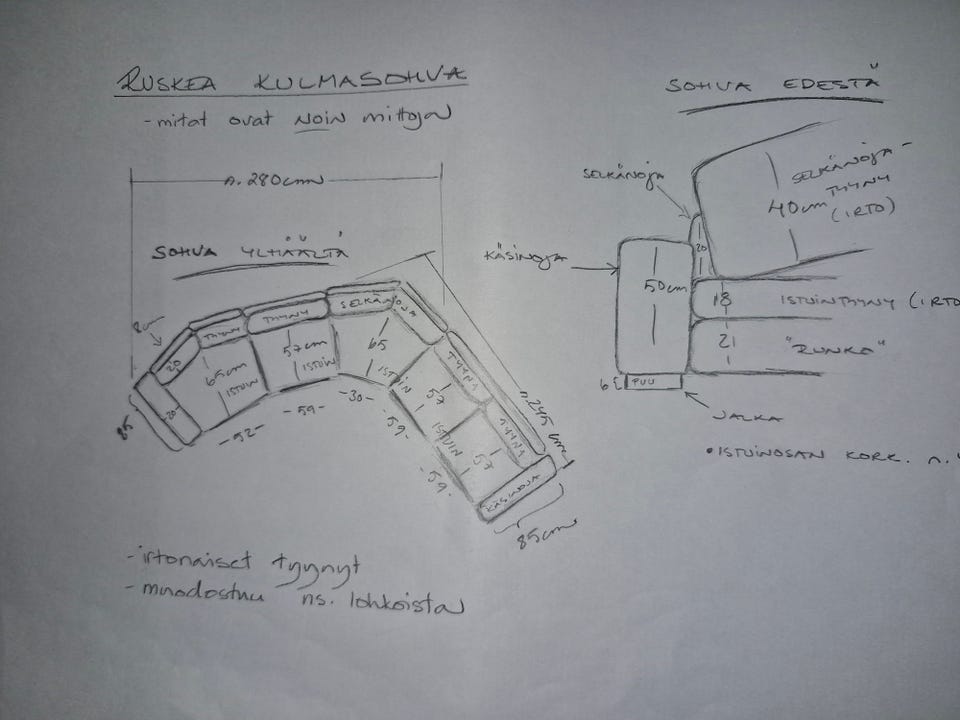 RUSKEA KULMASOHVA
- mitat ovat NOIN mittoja
n. 280cm
SOHVA YLHÄÄLTÄ
8cm
20
TYYNY
TYYNY
SELKÄNOJA
65cm
ISTUIN
57cm
ISTUIN
65
ISTUIN
20
85
- 52 -
- 59 -
- 30 -
- 59 -
- 59 -
57
ISTUIN
57
TYYNY
TYYNY
KÄSINOJA
n. 245 cm
85cm
- irtonaiset tyynyt
- muodostuu ns. lohkoista
SOHVA EDESTÄ
SELKÄNOJA
SELKÄNOJA-
TYYNY
40cm (IRTO)
KÄSINOJA
20
50cm
18 ISTUINTYYNY (IRTO
21 "RUNKO"
6 PUU
JALKA
• ISTUINOSAN KORK. n.